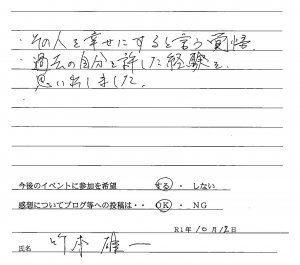 ・その人を幸せにすると言う覚悟。
・過去の自分を許した経験を
思い出しました。
今後のイベントに参加を希望 する ・ しない
感想についてブログ等への投稿は・・ OK ・ NG
R1年 10月 12日
氏名 竹本 雄一